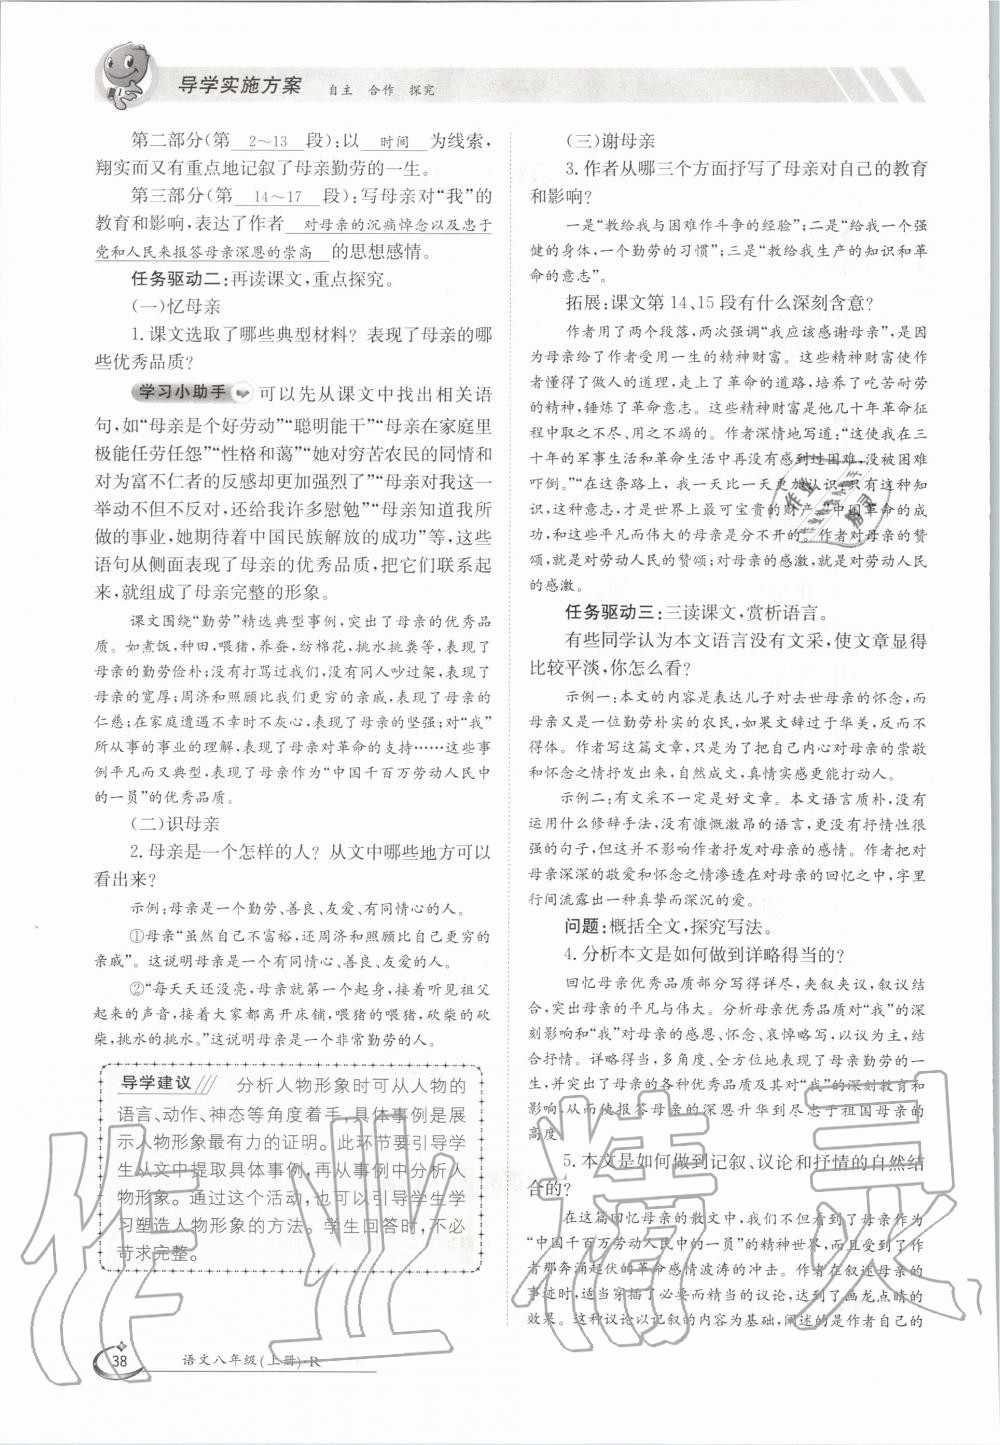 导学实施方案 自主 合作 探究
第二部分(第 2～13 段):以 时间 为线索,
翔实而又有重点地记叙了母亲勤劳的一生。
第三部分(第 14～17 段):写母亲对“我”的
教育和影响,表达了作者 对母亲的沉痛悼念以及忠于
党和人民来报答母亲深恩的崇高 的思想感情。
任务驱动二:再读课文,重点探究。
(一)忆母亲
1. 课文选取了哪些典型材料? 表现了母亲的哪
些优秀品质?
学习小助手 可以先从课文中找出相关语
句,如“母亲是个好劳动”“聪明能干”“母亲在家庭里
极能任劳任怨”“性格和蔼”“她对穷苦农民的同情和
对为富不仁者的反感却更加强烈了”“母亲对我这一
举动不但不反对,还给我许多慰勉”“母亲知道我所
做的事业,她期待着中国民族解放的成功”等,这些
语句从侧面表现了母亲的优秀品质,把它们联系起
来,就组成了母亲完整的形象。
课文围绕“勤劳”精选典型事例,突出了母亲的优秀品
质。如煮饭,种田,喂猪,养蚕,纺棉花,挑水挑粪等,表现了
母亲的勤劳俭朴;没有打骂过我们,没有同人吵过架,表现了
母亲的宽厚;周济和照顾比我们更穷的亲戚,表现了母亲的
仁慈;在家庭遭遇不幸时不灰心,表现了母亲的坚强;对“我”
所从事的事业的理解,表现了母亲对革命的支持……这些事
例平凡而又典型,表现了母亲作为“中国千百万劳动人民中
的一员”的优秀品质。
(二)识母亲
2. 母亲是一个怎样的人? 从文中哪些地方可以
看出来?
示例:母亲是一个勤劳、善良、友爱、有同情心的人。
①母亲“虽然自己不富裕,还周济和照顾比自己更穷的
亲戚”。这说明母亲是一个有同情心、善良、友爱的人。
②“每天天还没亮,母亲就第一个起身,接着听见祖父
起来的声音,接着大家都离开床铺,喂猪的喂猪,砍柴的砍
柴,挑水的挑水。”这说明母亲是一个非常勤劳的人。
导学建议 分析人物形象时可从人物的
语言、动作、神态等角度着手,具体事例是展
示人物形象最有力的证明。此环节要引导学
生从文中提取具体事例,再从事例中分析人
物形象。通过这个活动,也可以引导学生学
习塑造人物形象的方法。学生回答时,不必
苛求完整。
38 语文八年级(上册)·R
(三)谢母亲
3. 作者从哪三个方面抒写了母亲对自己的教育
和影响?
一是“教给我与困难作斗争的经验”;二是“给我一个强
健的身体,一个勤劳的习惯”;三是“教给我生产的知识和革
命的意志”。
拓展:课文第 14、15 段有什么深刻含意?
作者用了两个段落,两次强调“我应该感谢母亲”,是母
亲给予了作者受用一生的精神财富。这些精神财富使作
者懂得了做人的道理,走上了革命的道路,培养了吃苦耐劳
的精神,锤炼了革命意志。这些精神财富是他几十年革命征
程中取之不尽、用之不竭的。作者深情地写道:“这使我在三
十年的军事生活和革命生活中再没有感到过困难,没有被困难
吓倒。”“在这条路上,我一天比一天更加认识:只有这种知
识,这种意志,才是世界上最可宝贵的财产。”中国革命的成
功,和这些平凡而伟大的母亲是分不开的。作者对母亲的赞
颂,就是对劳动人民的赞颂;对母亲的感激,就是对劳动人民
的感激。
任务驱动三:三读课文,赏析语言。
有些同学认为本文语言没有文采,使文章显得
比较平淡,你怎么看?
示例一:本文的内容是表达儿子对去世母亲的怀念,而
母亲又是一位勤劳朴实的农民,如果文辞过于华美,反而不
得体。作者写这篇文章,只是为了把自己内心对母亲的崇敬
和怀念之情抒发出来,自然成文,真情实感更能打动人。
示例二:有文采不一定是好文章。本文语言质朴,没有
运用什么修辞手法,没有慷慨激昂的语言,更没有抒情性很
强的句子,但这并不影响作者抒发对母亲的感情。作者把对
母亲深深的敬爱和怀念之情渗透在对母亲的回忆之中,字里
行间流露出一种真挚而深沉的爱。
问题:概括全文,探究写法。
4. 分析本文是如何做到详略得当的?
回忆母亲优秀品质部分写得详尽,夹叙夹议,叙议结
合,突出母亲的平凡与伟大。分析母亲优秀品质对“我”的深
刻影响和“我”对母亲的感恩、怀念、哀悼略写,以议为主,结
合抒情。详略得当,多角度、全方位地表现了母亲勤劳的一
生,并突出了母亲的各种优秀品质及其对“我”的深刻教育和
影响,从而使报答母亲的深恩升华到尽忠于祖国母亲的
高度。
5. 本文是如何做到记叙、议论和抒情的自然结
合的?
在这篇回忆母亲的散文中,我们不但看到了母亲作为
“中国千百万劳动人民中的一员”的精神世界,而且受到了作
者那奔涌起伏的革命感情波涛的冲击。作者在叙述母亲的
事迹时,适当穿插了必要而精当的议论,达到了画龙点睛的
效果。这种议论以记叙的内容为基础,阐述的是作者自己的
作业精灵
作业精灵